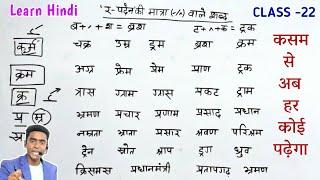 Learn Hindi
र - पदेन की मात्रा (-/^) वाले शब्द
CLASS -22
ब+्+श = ब्रश
ट+्+क = ट्रक
कर्म
क्रम
क्र
चक्र उम्र ड्रम ब्रश क्रम
अग्र फ्रेम प्रेम प्राण ट्रक
त्रास ग्राम ग्रास प्रकट ड्राम
भ्रमण प्रचार प्रणाम प्रसाद प्रधान
नम्रता भ्राता प्रसार श्रवण परिश्रम
ट्रेन स्रोत श्राप ड्रग ध्रुव
क्रिसमस प्रधानमंत्री प्रतापगढ़ भ्रमण
कसम
से
अब
हर
कोई
पढ़ेगा